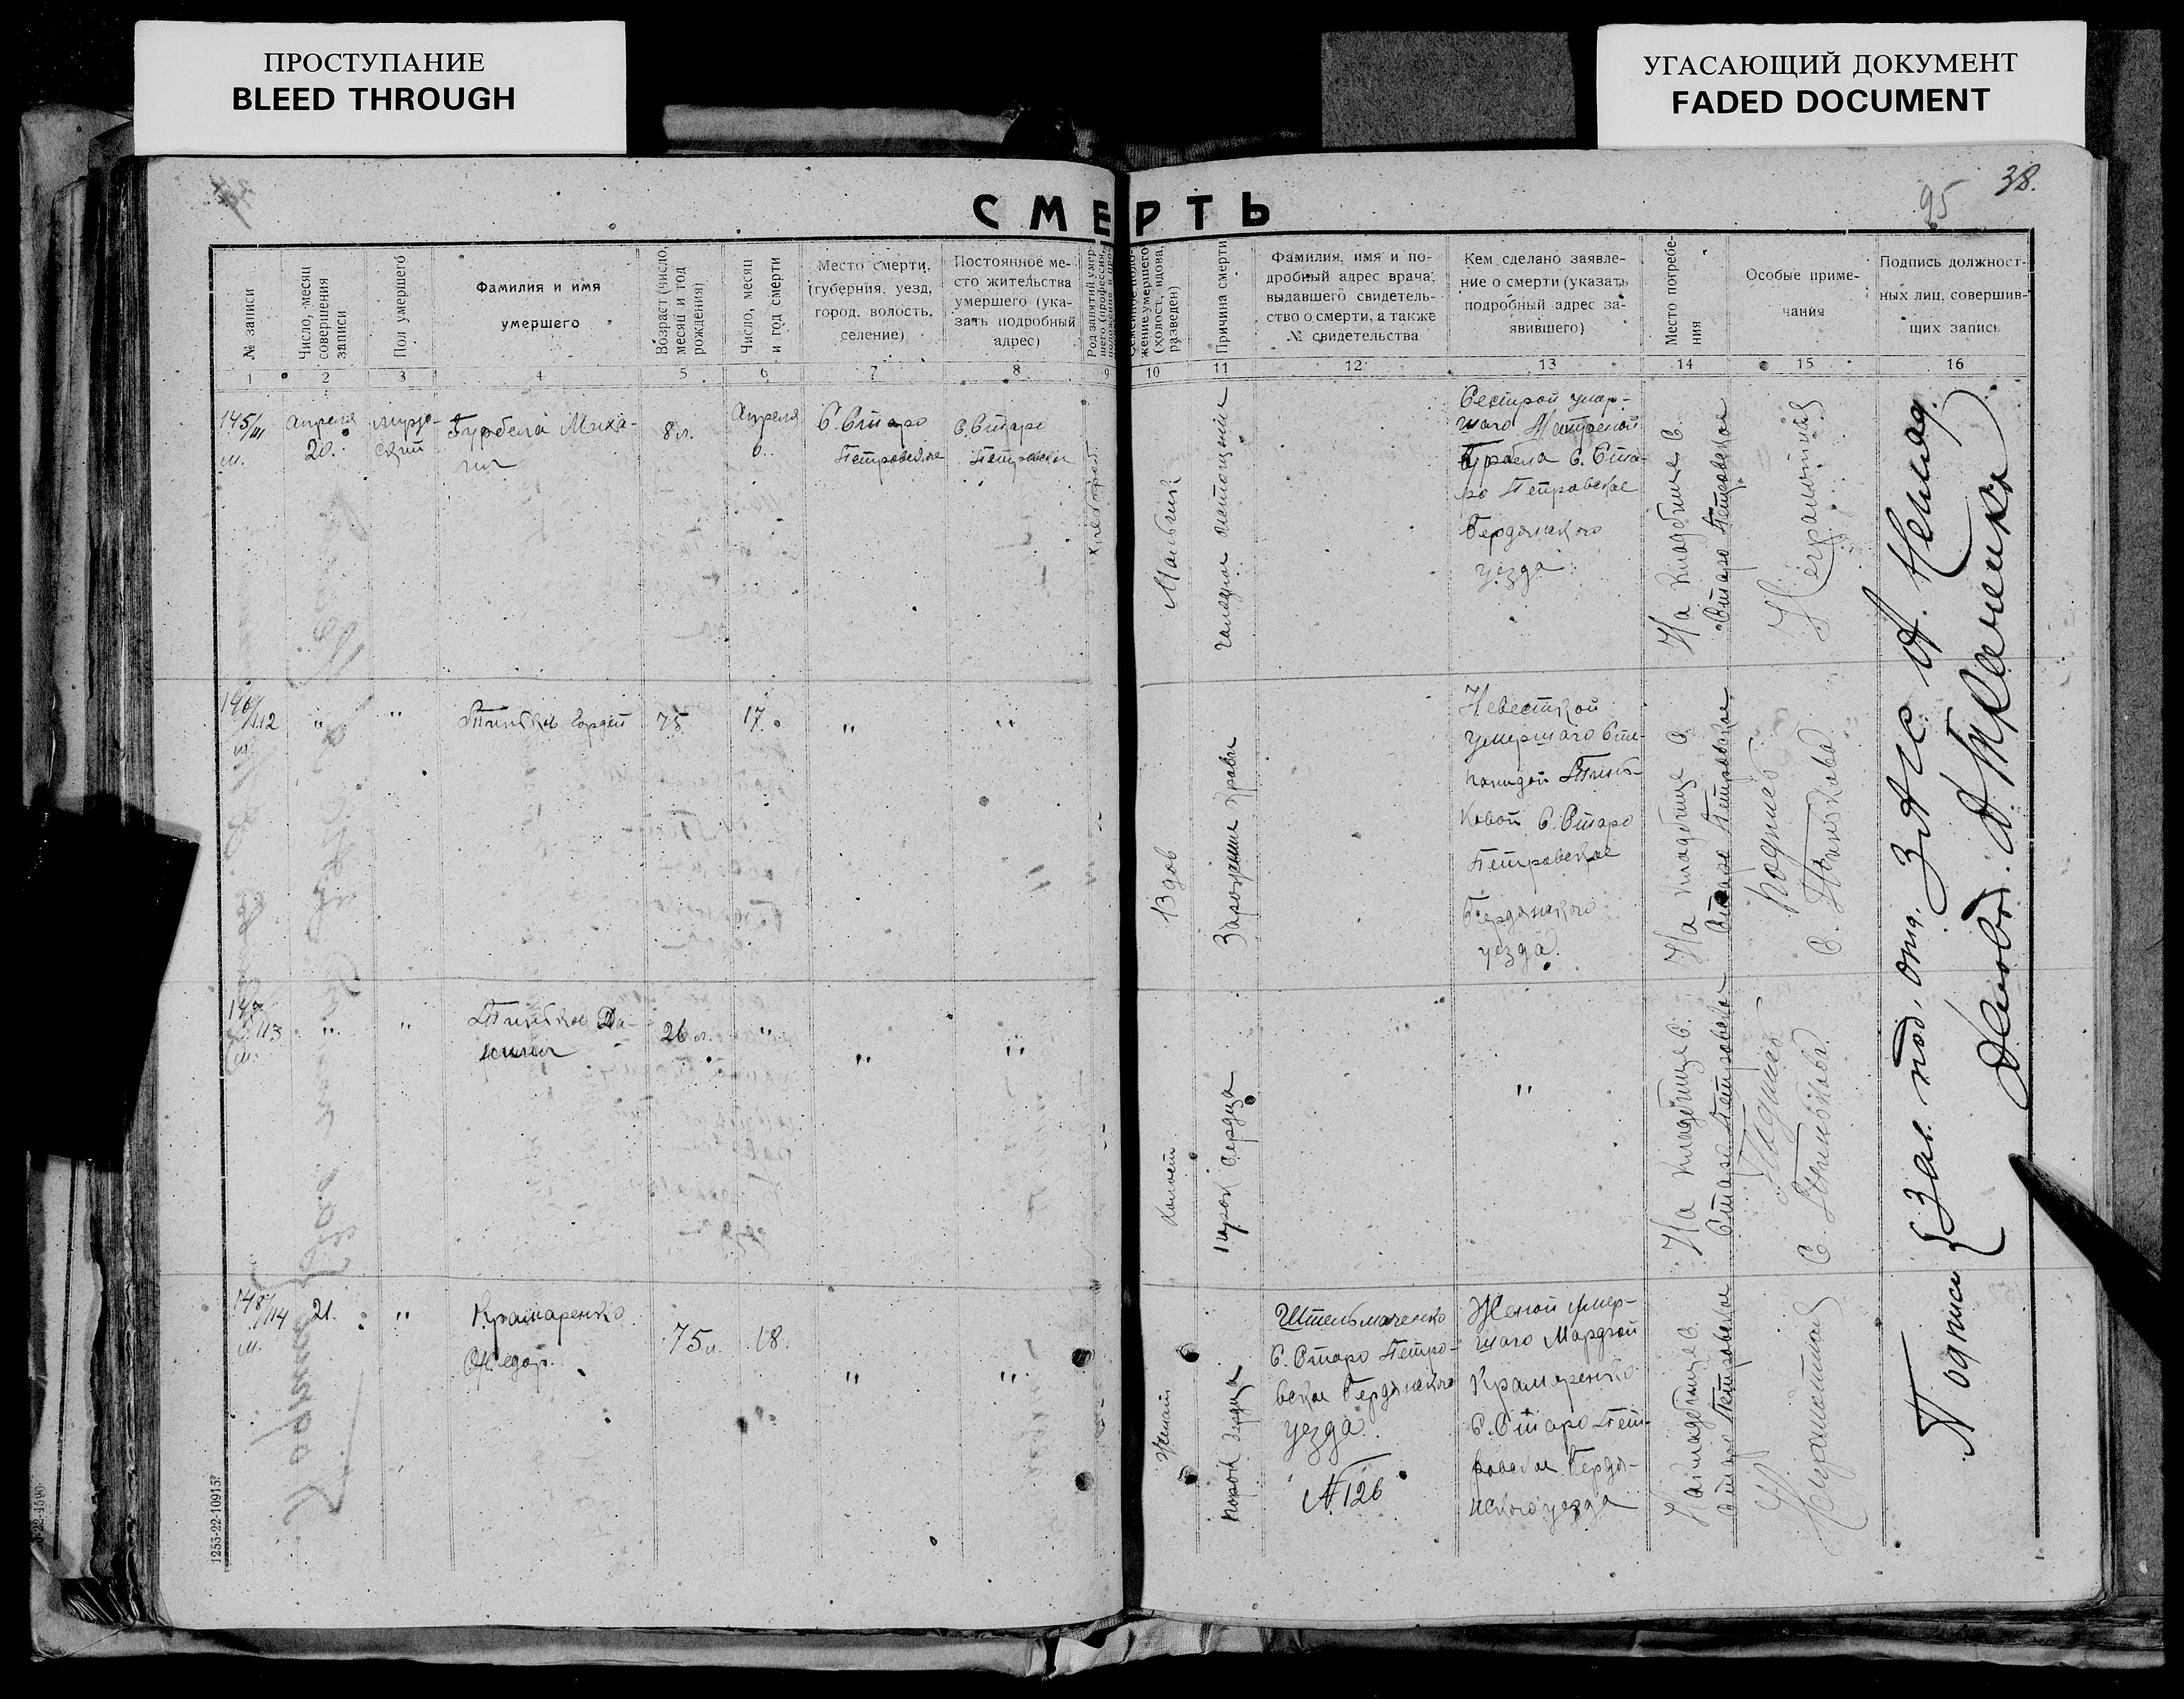 ПРОСТУПАНИЕ
BLEED THROUGH
УГАСАЮЩИЙ ДОКУМЕНТ
FADED DOCUMENT
38.
95
СМЕРТЬ
№ записи
Число, месяц
совершения
записи
Пол умершего
Фамилия и имя
умершего
Возраст (число,
месяц и год
рождения)
Число, месяц
и год смерти
Место смерти,
(губерния, уезд,
город, волость,
селение)
Постоянное ме-
сто жительства
умершего (ука-
зать подробный
адрес)
Род занятий умер-
жение умершего
(холост, вдова,
разведен)
Причина смерти
Фамилия, имя и по-
дробный адрес врача,
выдавшего свидетель-
ство о смерти, а также
№ свидетельства
Кем сделано заявле-
ние о смерти (указать
подробный адрес за-
явившего)
Место погребе-
ния
Особые приме-
чания
Подпись должност-
ных лиц, совершив-
ших запись
1 2 3 4 5 6 7 8 9 10 11 12 13 14 15 16
145/111
м.
Апреля
20.
мужс-
кий
Гурбела Миха-
ил
8 л.
Апреля
6.
С. Старо
Петровское
С. Старо
Петровское
хлебороб
Мальчик
Сестрой умер-
шаго Матреной
Гурбела С. Ста-
ро Петровское
Бердянского
уезда
На кладбище С.
Старо Петровское
Неграмотная
146/112
м.
"
"
Гордей
75
17.
"
"
Вдов
Заражение крови
Невесткой
умершаго Сте-
панидой
ковой С. Старо
Петровское
Бердянского
уезда.
На кладбище С.
Старо Петровское
147/113
м.
"
"
26 л.
"
"
"
Холост
порок сердца
"
На кладбище С.
Старо Петровское
148/114
м.
21.
"
Крамаренко
Федор.
75 л.
18.
"
"
Женат
порок сердца
Штельмаченко
С. Старо Петро-
вское Бердянского
уезда.
№ 126
Женой умер-
шаго Марфой
Крамаренко
С. Старо Пет-
ровское Бердя-
нского уезда
На кладбище С.
Старо Петровское
Неграмотная
Подписи
Зав. под. отд. ЗАГС А.
Делов.
1253-22-10915?